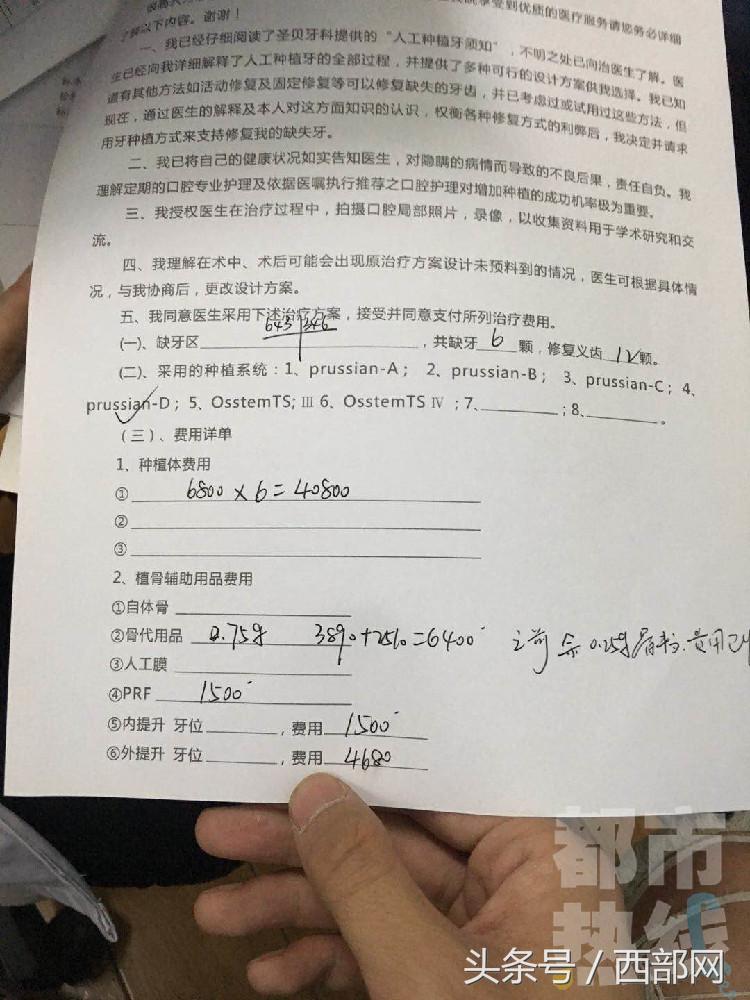 受到优质的医疗服务请您务必详细
了解以下内容。谢谢！
一、我已经仔细阅读了圣贝牙科提供的“人工种植牙须知”，不明之处已向治医生了解。医
生已经向我详细解释了人工种植牙的全部过程，并提供了多种可行的设计方案供我选择。我已知
道有其他方法如活动修复及固定修复等可以修复缺失的牙齿，并已考虑过或试用过这些方法，但
现在，通过医生的解释及本人对这方面知识的认识，权衡各种修复方式的利弊后，我决定并请求
用牙种植方式来支持修复我的缺失牙。
二、我已将自己的健康状况如实告知医生，对隐瞒的病情而导致的不良后果，责任自负。我
理解定期的口腔专业护理及依据医嘱执行推荐之口腔护理对增加种植的成功机率极为重要。
三、我授权医生在治疗过程中，拍摄口腔局部照片，录像，以收集资料用于学术研究和交
流。
四、我理解在术中、术后可能会出现原治疗方案设计未预料到的情况，医生可根据具体情
况，与我协商后，更改设计方案。
五、我同意医生采用下述治疗方案，接受并同意支付所列治疗费用。
(一)、缺牙区 643 346 ，共缺牙 6 颗，修复义齿 12 颗。
(二)、采用的种植系统：1、prussian-A； 2、prussian-B； 3、prussian-C； 4、
prussian-D； 5、OsstemTS; Ⅲ 6、OsstemTS Ⅳ ；7、 ；8、 。
（三）、费用详单
1、种植体费用
① 6800 × 6 = 40800
②
③
2、植骨辅助用品费用
①自体骨
②骨代用品 0.75g 3890+2510=6400 之前 余 0.25g骨粉.费用已
③人工膜
④PRF 1500
⑤内提升 牙位 ，费用 1500
⑥外提升 牙位 ，费用 4680
都市
热线
头条号 / 西部网